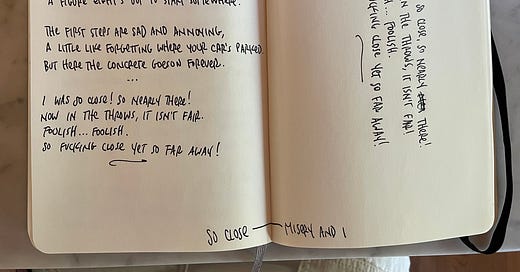 A FIGURE EIGHT'S GOT TO START SOMEWHERE.
THE FIRST STEPS ARE SAD AND ANNOYING,
A LITTLE LIKE FORGETTING WHERE YOUR CAR'S PARKED.
BUT HERE THE CONCRETE GOES ON FOREVER.
...
I WAS SO CLOSE! SO NEARLY THERE!
NOW IN THE THROWS, IT ISN'T FAIR.
FOOLISH... FOOLISH.
SO FUCKING CLOSE YET SO FAR AWAY!
SO CLOSE — MISERY AND I
SO CLOSE SO NEARLY THERE!
IN THE THROWS, IT ISN'T FAIR!
... FOOLISH.
FUCKING CLOSE YET SO FAR AWAY!